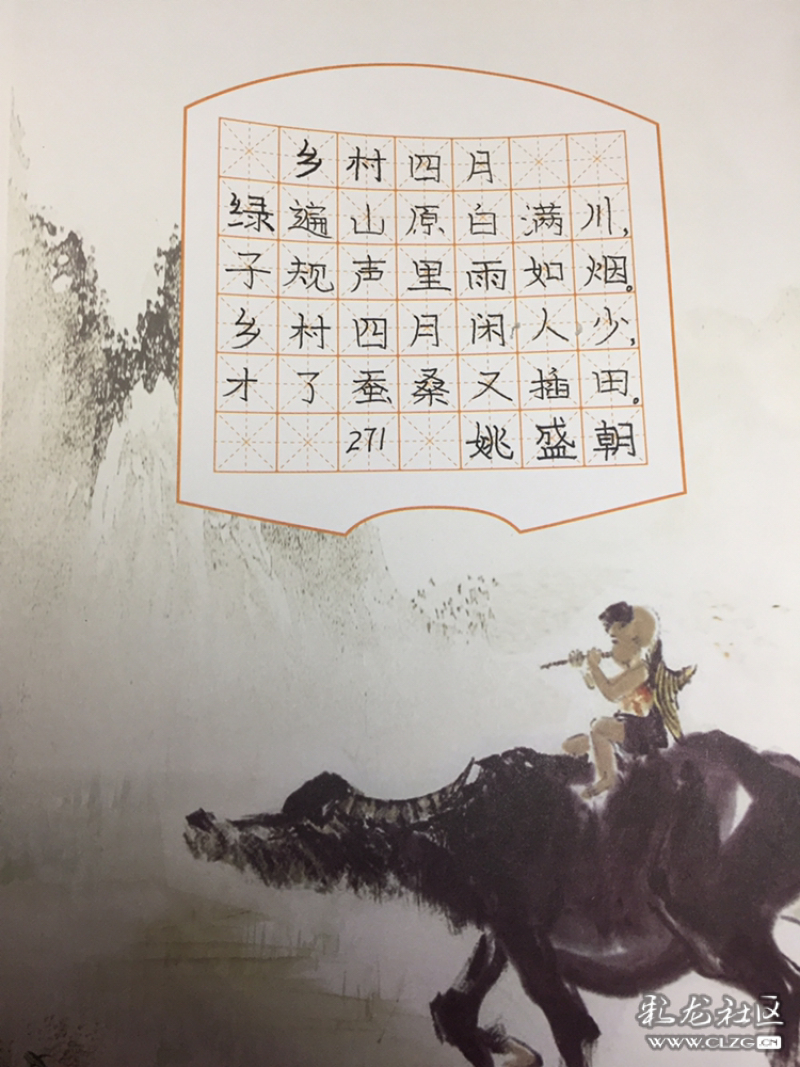 乡村四月
绿遍山原白满川，
子规声里雨如烟。
乡村四月闲人少，
才了蚕桑又插田。
271 姚盛朝
彩龙社区
WWW.CLZG.CN